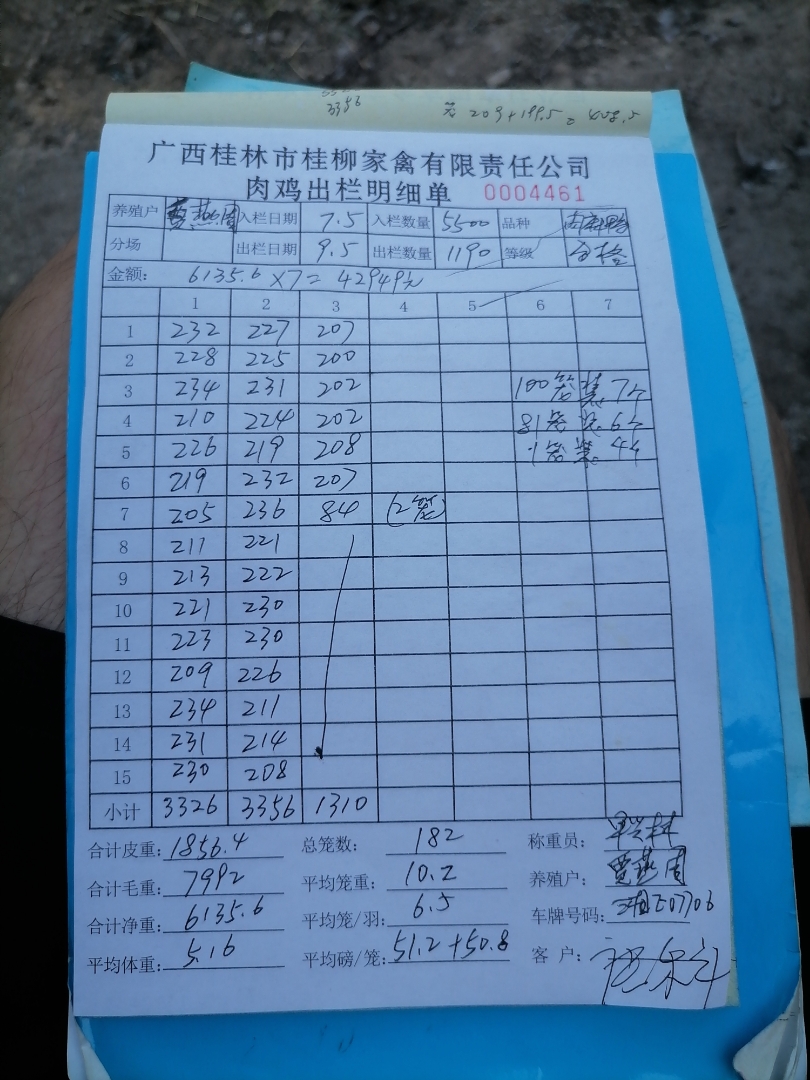 3356
209+199.5=408.5
广西桂林市桂柳家禽有限责任公司
肉鸡出栏明细单 0004461
养殖户 贾燕周 入栏日期 7.5 入栏数量 5500 品种
分场 出栏日期 9.5 出栏数量 1190 等级 合格
金额: 6135.6×7=42949元
1 2 3 4 5 6 7
1 232 227 207
2 228 225 200
3 234 231 202 100笼装7个
4 210 224 202 81笼装6个
5 226 219 208 1笼装4个
6 219 232 207
7 205 236 84 (2笼)
8 211 221
9 213 222
10 221 230
11 223 230
12 209 226
13 234 211
14 231 214
15 230 208
小计 3326 3356 1310
合计皮重: 1856.4 总笼数: 182 称重员:
合计毛重: 7992 平均笼重: 10.2 养殖户: 贾燕周
合计净重: 6135.6 平均笼/羽: 6.5 车牌号码:
平均体重: 5.16 平均磅/笼: 51.2+50.8 客 户: